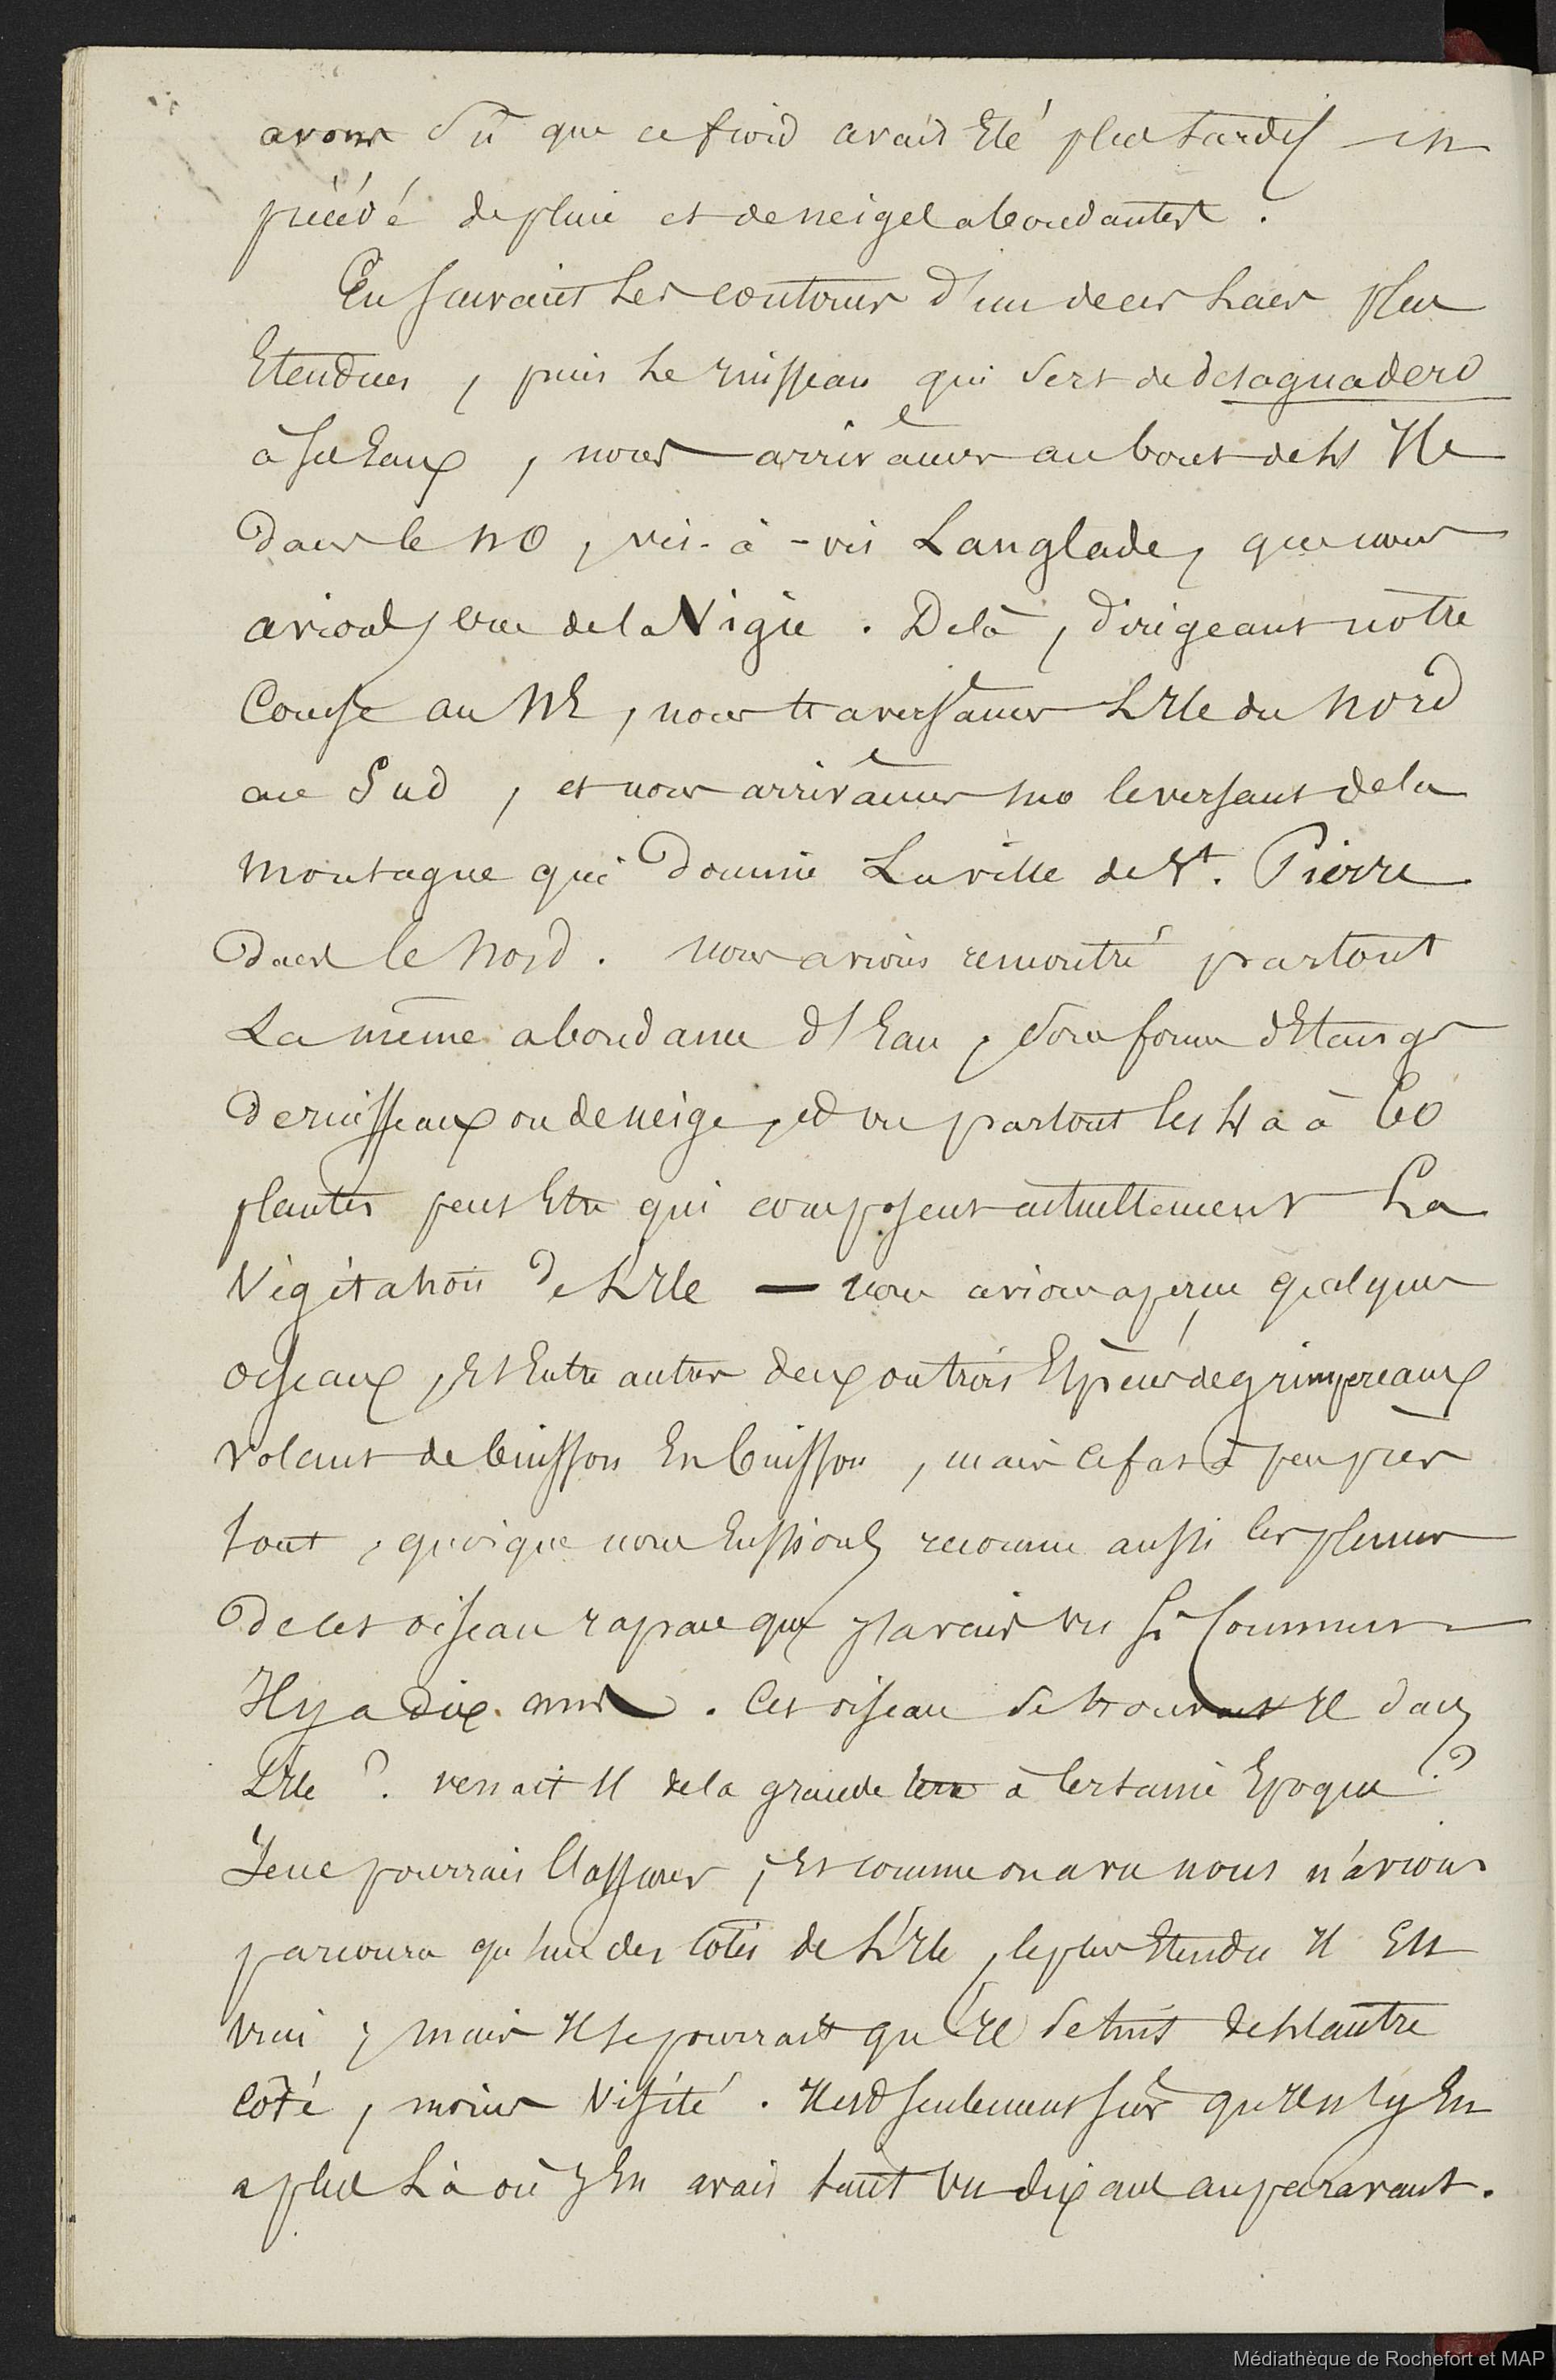 avons su que ce froid avait Eté plus tardif et
précédé de pluie et de neiges abondantes.
En suivant les contours d'un de ces Lacs plus
Etendues, puis Le ruisseau qui sert de desaguadero
à ses Eaux, nous arrivâmes au bout de L'Ile
dans le NO, vis-à-vis Langlade, que nous
avions vue de la Vigie. De là, dirigeant notre
Course au NE, nous traversâmes L'Ile du Nord
au Sud, et nous arrivâmes sur le versant de la
Montagne qui Domine La ville de St. Pierre
Dans le Nord. Nous avions rencontré partout
La même abondance d'Eau, sous forme d'Etangs
de ruisseaux ou de neige, et vu partout les 40 à 60
plantes peut Etre qui composent actuellement La
Végétation de L'Ile — nous avions aperçu quelques
oiseaux, Et Entre autres deux ou trois Espèces de grimpereaux
volant de buisson En buisson, mais ce fut à peu près
tout, quoique nous Eussions reconnu aussi les plumes
De cet oiseau rapace que j'avais vu si Commun
Il y a dix ans. Cet oiseau se trouvait Il dans
L'Ile ? venait Il de la grande terre à Certaine Epoque ?
Je ne pourrais L'assurer, Et comme on a vu nous n'avions
parcouru qu'un des Cotés de L'Ile, le plus Etendu Il Est
vrai, mais Il se pourrait qu'Il se tint de L'autre
Côté, moins Visité. Il est seulement sûr qu'Il n'y En
a plus Là où j'En avais tant vu dix ans auparavant.
Médiathèque de Rochefort et MAP